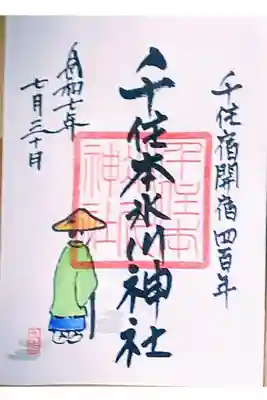 千住宿開宿四百年
千住本氷川神社
令和七年
七月三十日
千住本
氷川
神社